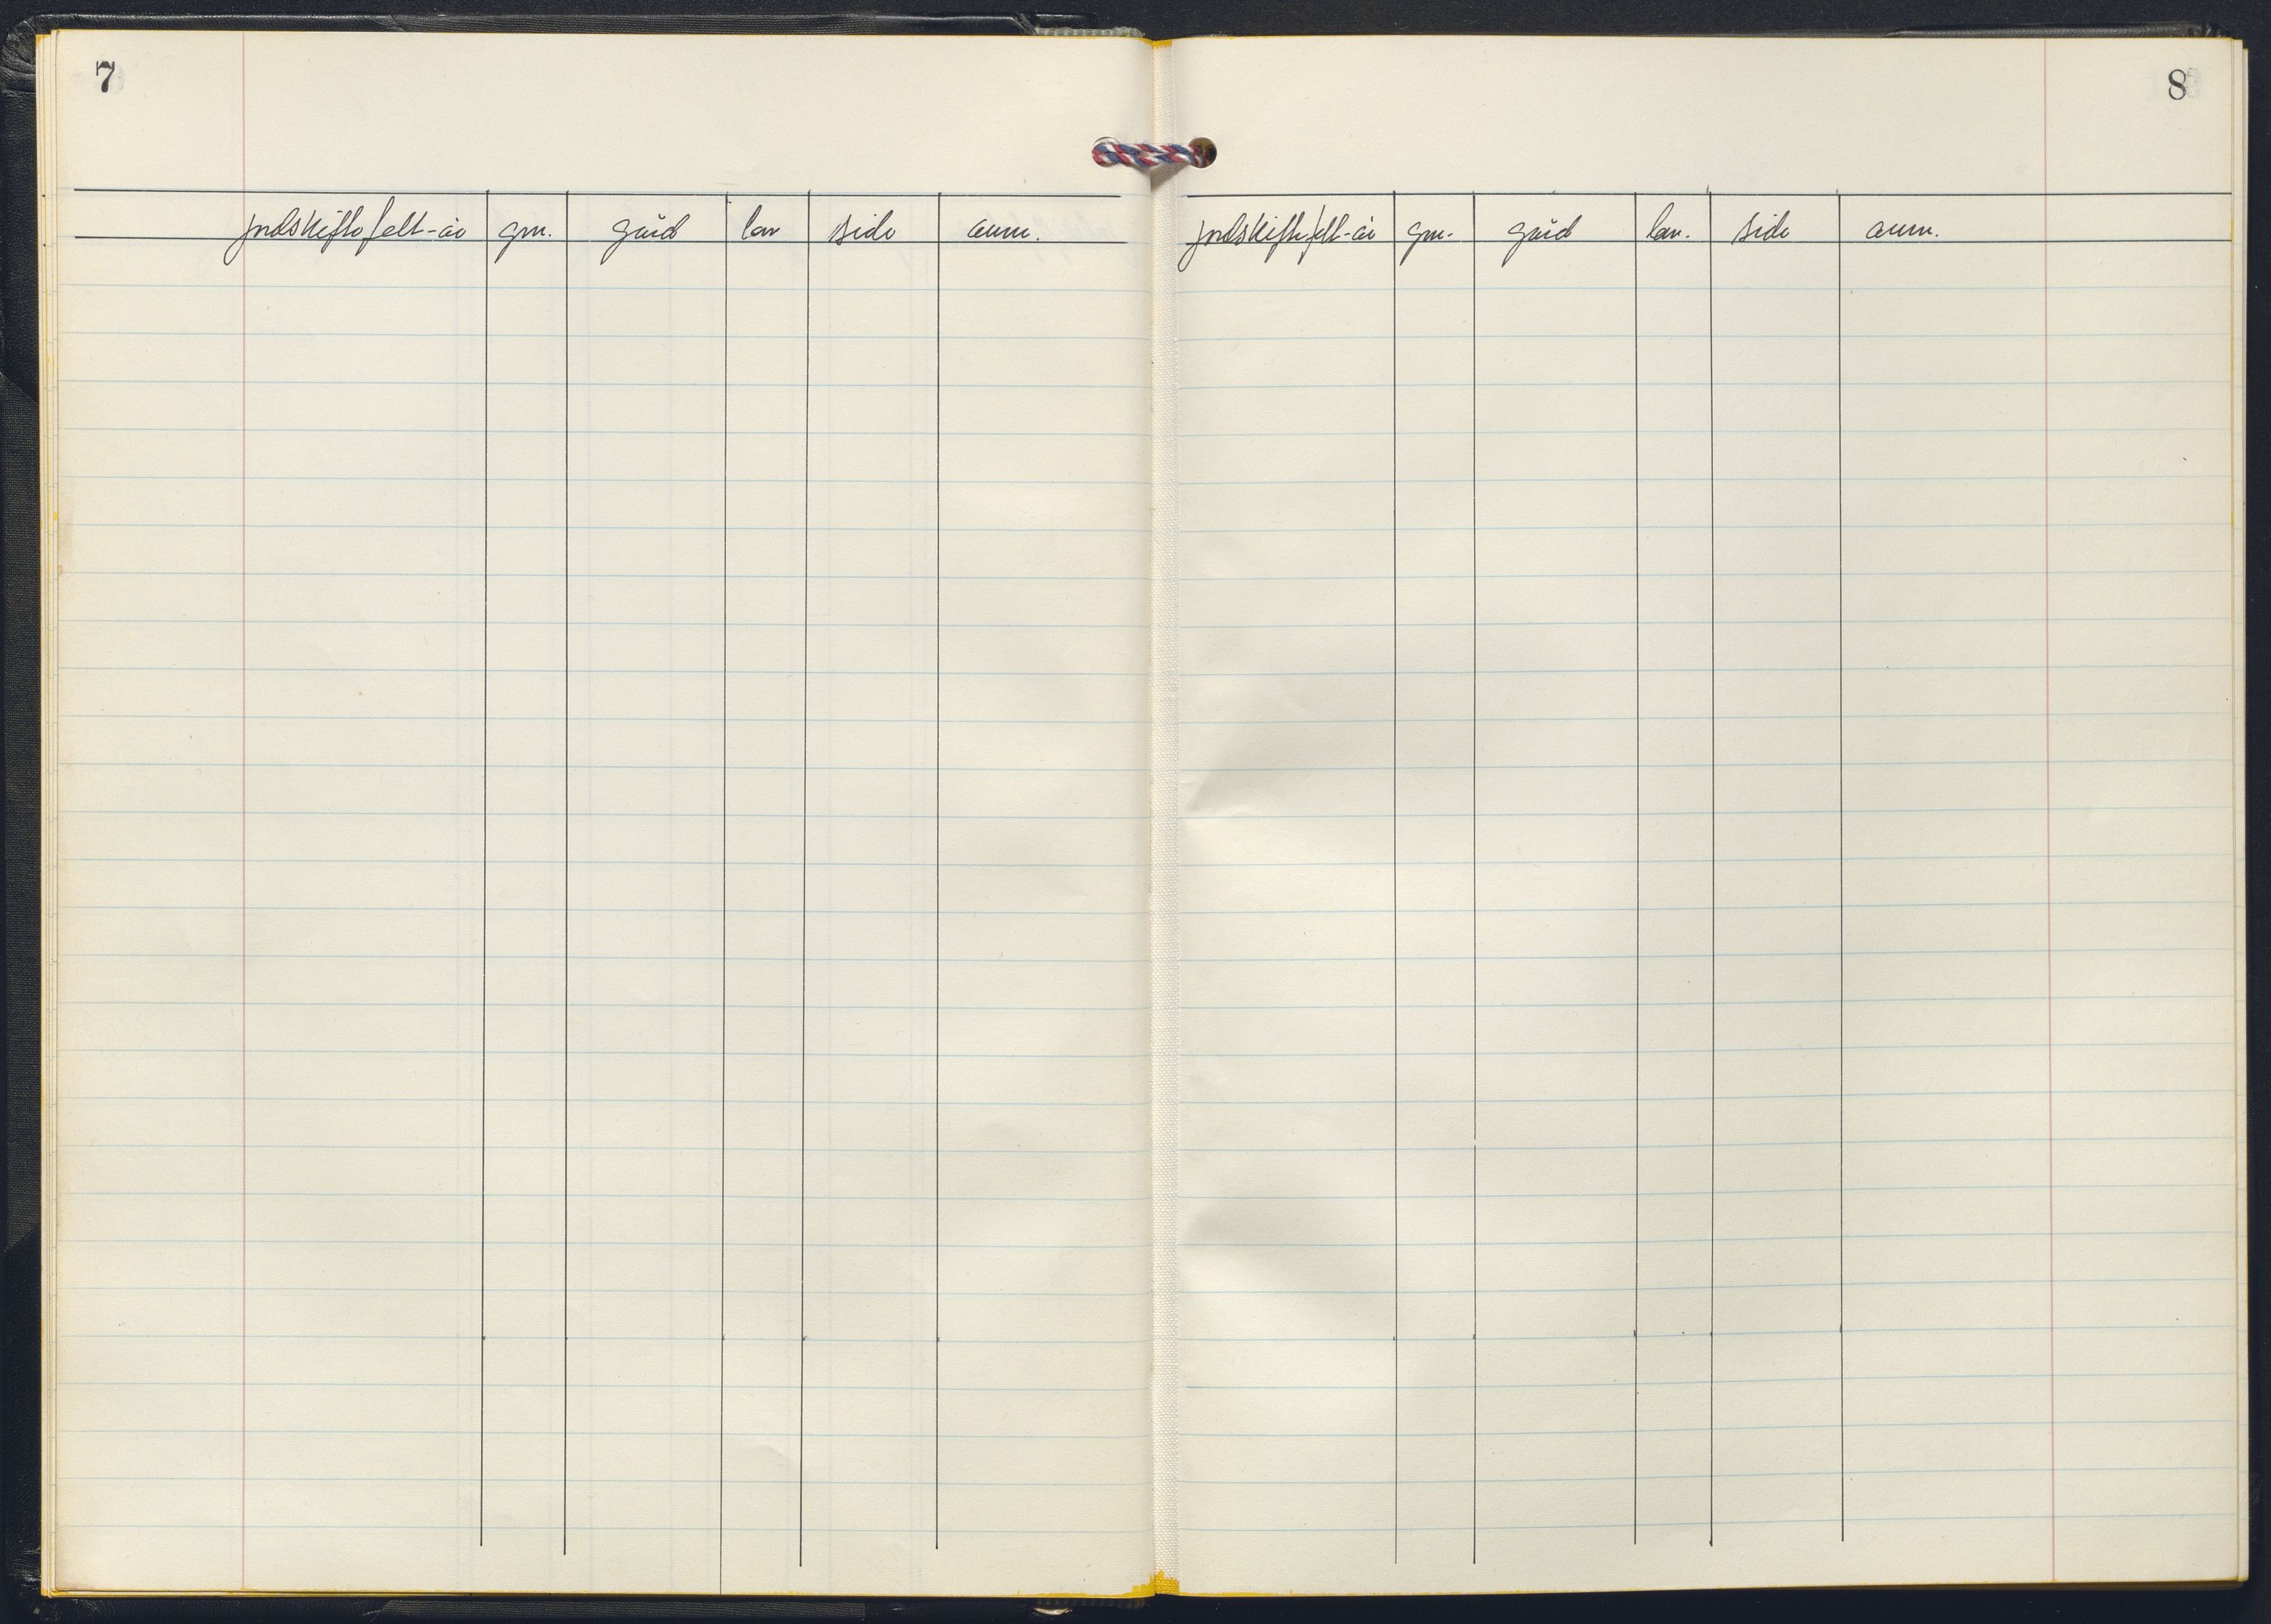 7
jordskiftefelt-år gnr. gård lnr side anm.
8
jordskiftefelt-år gnr. gård lnr. side anm.